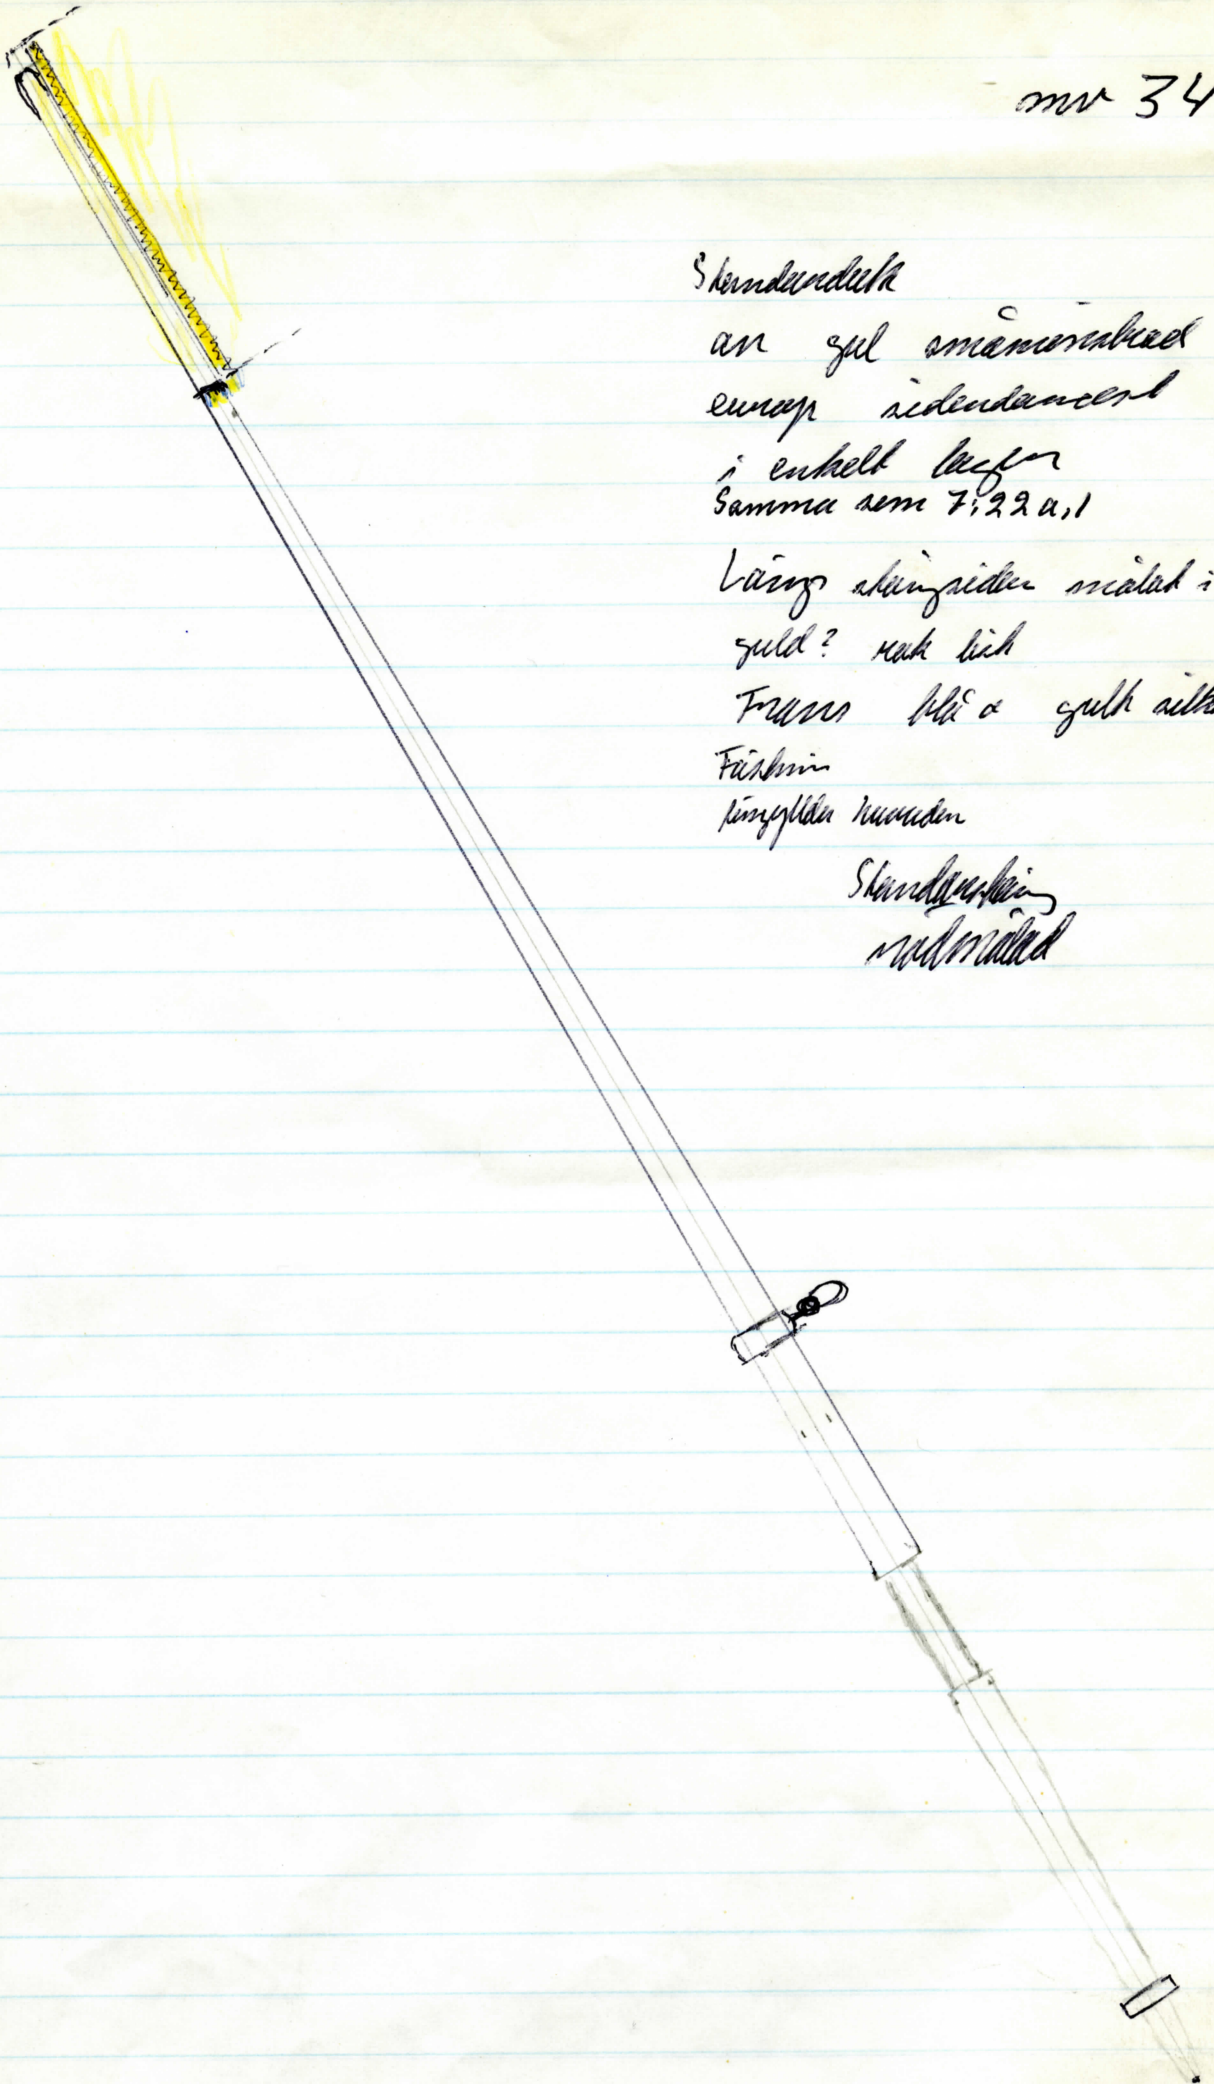 mv 34
Standarduk
av gul småmönstrad
europ sidendamast
i enkelt lager
Samma som 7:22a,1
Längs stångsidan målat i
guld? rak list
Frans blå o gult silke
Fästn
förgyllda huvuden
Standarstång
rödmålad